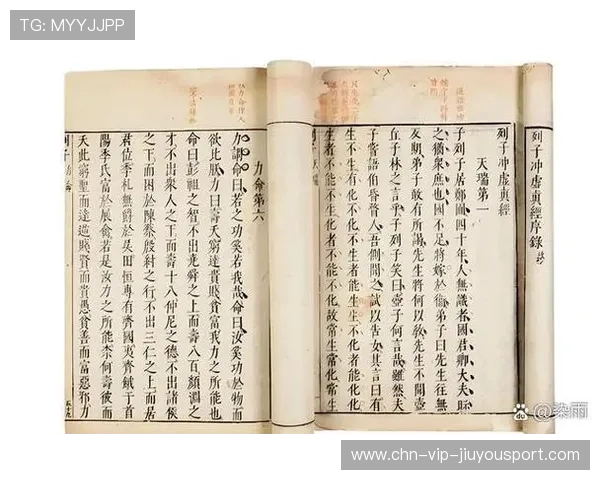 TG: MYYJJPP
列子冲虚眞經序錄
列子冲虚眞經
天瑞第一
子列子居鄭圃四十年人無識者國君卿大夫眎
之猶衆庶也國不足將嫁於衞弟子曰先生徃無
反期弟子敢有所謁先生將何以敎先生不聞壺
丘子林之言乎子列子笑曰壺子何言哉雖然夫
子甞語伯昏瞀人吾側聞之試以告女其言曰有
生不生有化不化不生者能生生不化者能化化
生者不能不生化者不能不化故常生常化常生
列子 天瑞
力命第六
力謂命曰若之功奚若我哉命曰汝奚功於物而
欲比朕力曰壽夭窮達貴賤貧富我力之所能也
命曰彭祖之智不出堯舜之上而壽八百顏淵之
才不出衆人之下而壽十八仲尼之德不出諸侯
之下而困於陳蔡殷紂之行不出三仁之上而居
君位季札無爵於吳田恒專有齊國夷齊餓于首
陽季氏富於展禽若是汝力之所能柰何壽彼而
夭此窮聖而達逆賤賢而貴愚貧善而富惡邪力
列子 力命
du @染雨
www.chn-vip-jiuyousport.com